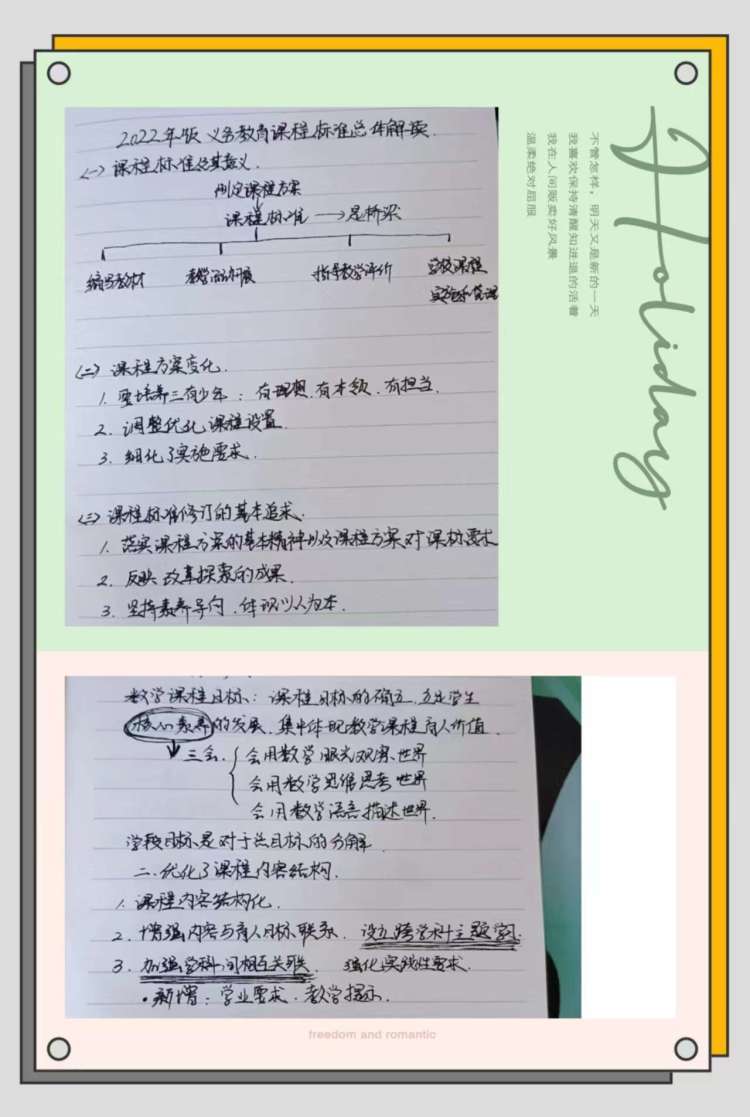 2022年版 义务教育课程标准总体解读.
(一)课程标准及其意义.
制定课程方案
课程标准 → 是桥梁
编写教材 教学活动开展 指导教学评价 学校课程
实施和管理
(二)课程方案变化.
1. 要培养三有少年:有理想.有本领.有担当.
2. 调整优化课程设置.
3. 细化了实施要求.
(三)课程标准修订的基本追求.
1. 落实课程方案的基本精神以及课程方案对课标要求
2. 反映改革探索的成果.
3. 坚持素养导向.体现以人为本.
Holiday
不管怎样,明天又是新的一天
我喜欢保持清醒知进退的活着
我在人间贩卖好风景
温柔绝对屈服
数学课程目标:课程目标的确立.立足学生
核心素养的发展.集中体现数学课程育人价值.
三会.
会用数学眼光观察世界
会用数学思维思考世界
会用数学语言描述世界.
学段目标是对于总目标的分解
二.优化了课程内容结构.
1. 课程内容结构化.
2. 增强内容与育人目标联系.设立跨学科主题学习.
3. 加强学科间相互关联.强化实践性要求.
·新增:学业要求.教学提示.
freedom and romantic